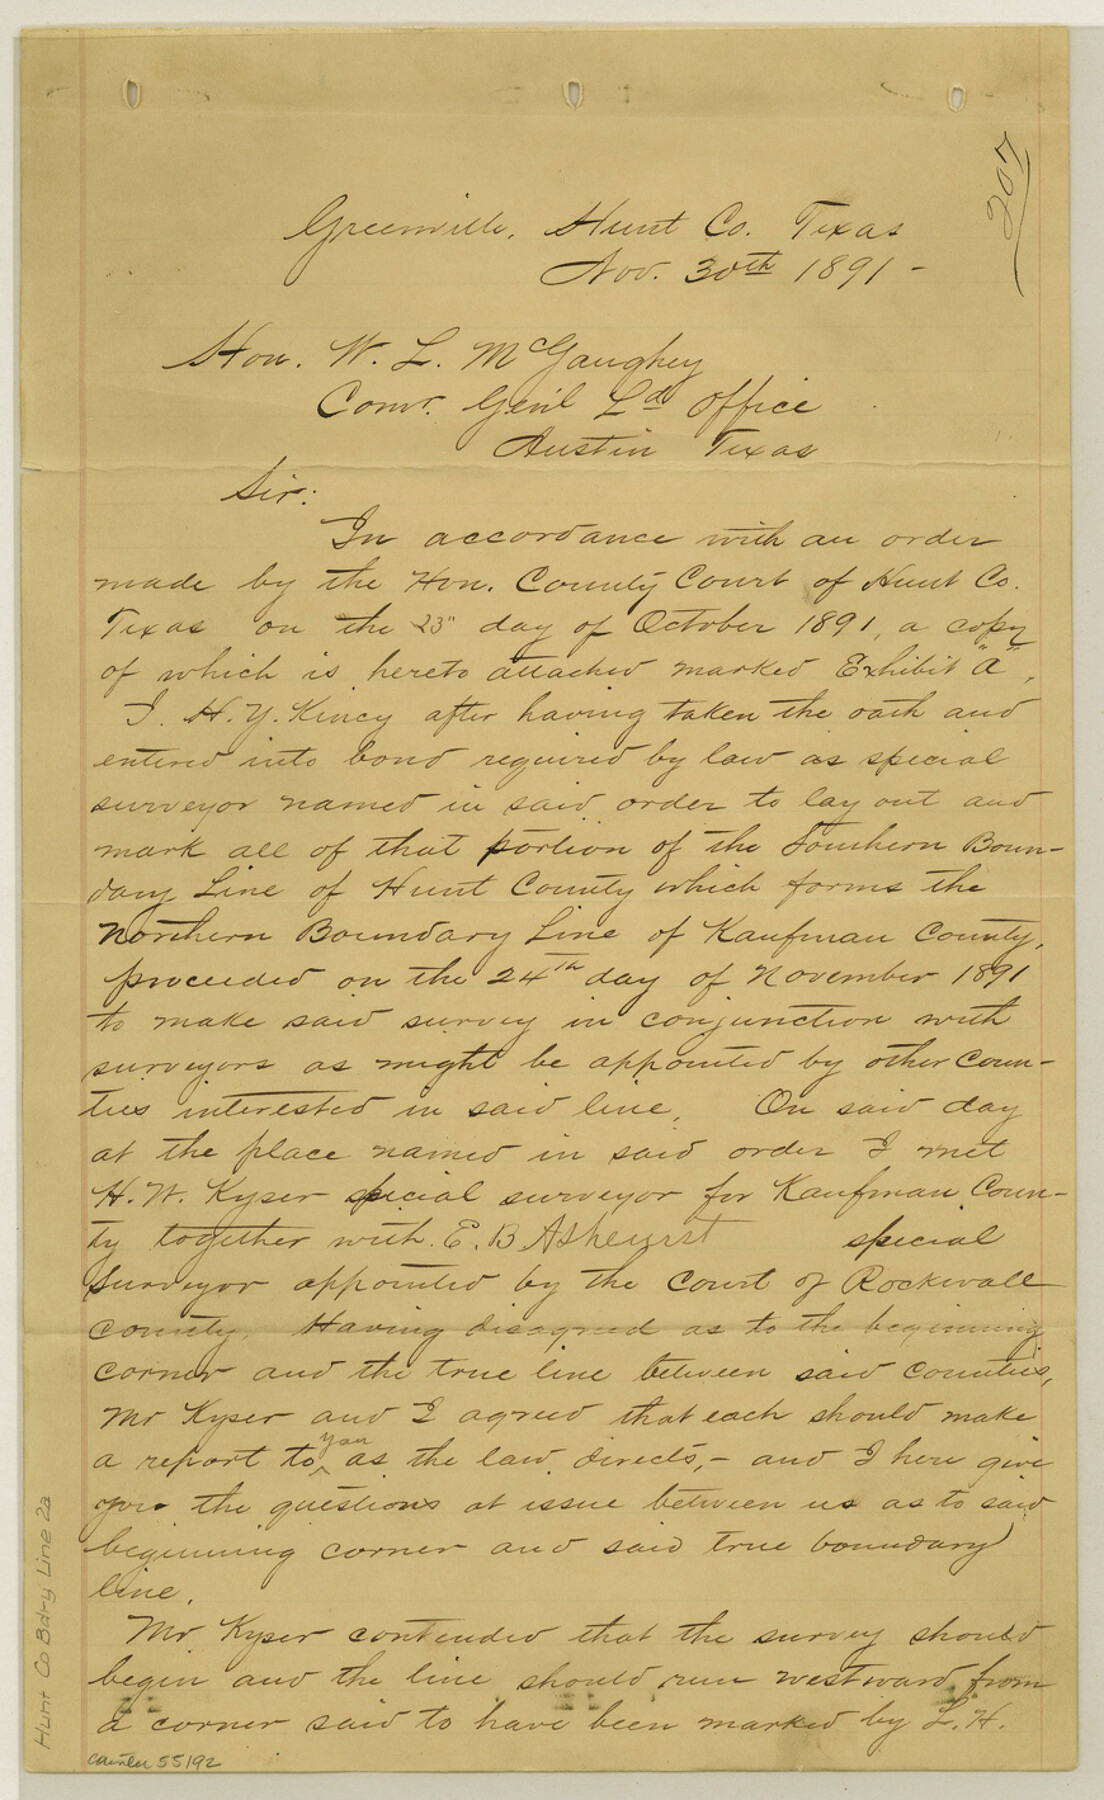 207
Greenville, Hunt Co. Texas
Nov. 30th 1891 -
Hon. W. L. McGaughey
Comr. Gen'l Ld Office
Austin Texas
Sir:
In accordance with an order
made by the Hon. County Court of Hunt Co.
Texas on the 23" day of October 1891, a copy
of which is hereto attached marked Exhibit "A",
I. H. Y. Kincy after having taken the oath and
entered into bond required by law as special
surveyor named in said order to lay out and
mark all of that portion of the Southern Boun-
dary Line of Hunt County which forms the
Northern Boundary Line of Kaufman County,
proceeded on the 24th day of November 1891
to make said survey in conjunction with
surveyors as might be appointed by other Coun-
ties interested in said line. On said day
at the place named in said order I met
H. W. Kyser special surveyor for Kaufman Coun-
ty together with E. B Asheurst special
surveyor appointed by the Court of Rockwall
County. Having disagreed as to the beginning
corner and the true line between said Counties,
Mr Kyser and I agreed that each should make
a report to you as the law directs, - and I here give
you the questions at issue between us as to said
beginning corner and said true boundary
line.
Mr Kyser contended that the survey should
begin and the line should run westward from
a corner said to have been marked by L. H.
Hunt Co Bdry Line 2a
counter 55192